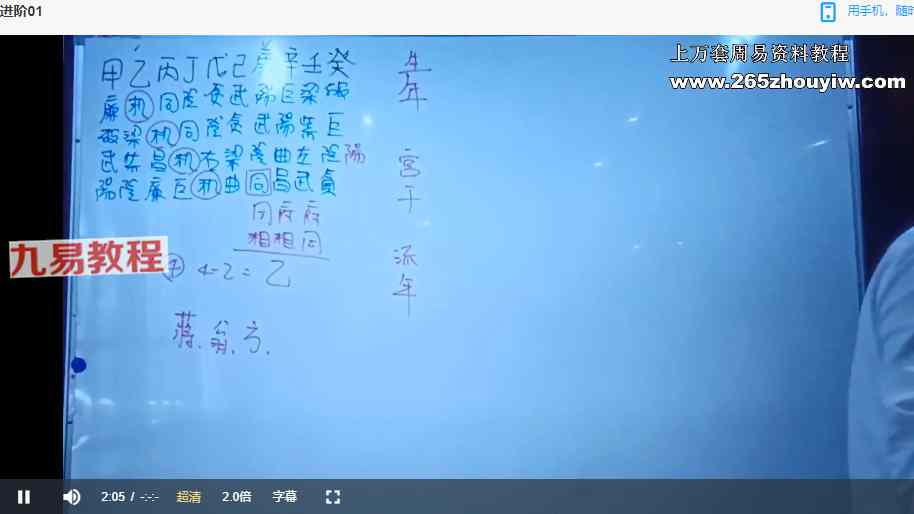 进阶01
用手机，随
上万套周易资料教程
www.265zhouyiw.com
甲乙丙丁戊己庚辛壬癸
廉机同陰贪武陽巨梁破
破梁机同陰贪武陽紫巨
武紫昌机右梁陰曲左陰陽
陽陰廉巨机曲同昌武貪
府府
相相同
4-2=乙
生年
宫干
流年
九易教程
2:05 / -:-:-
超清
2.0倍
字幕